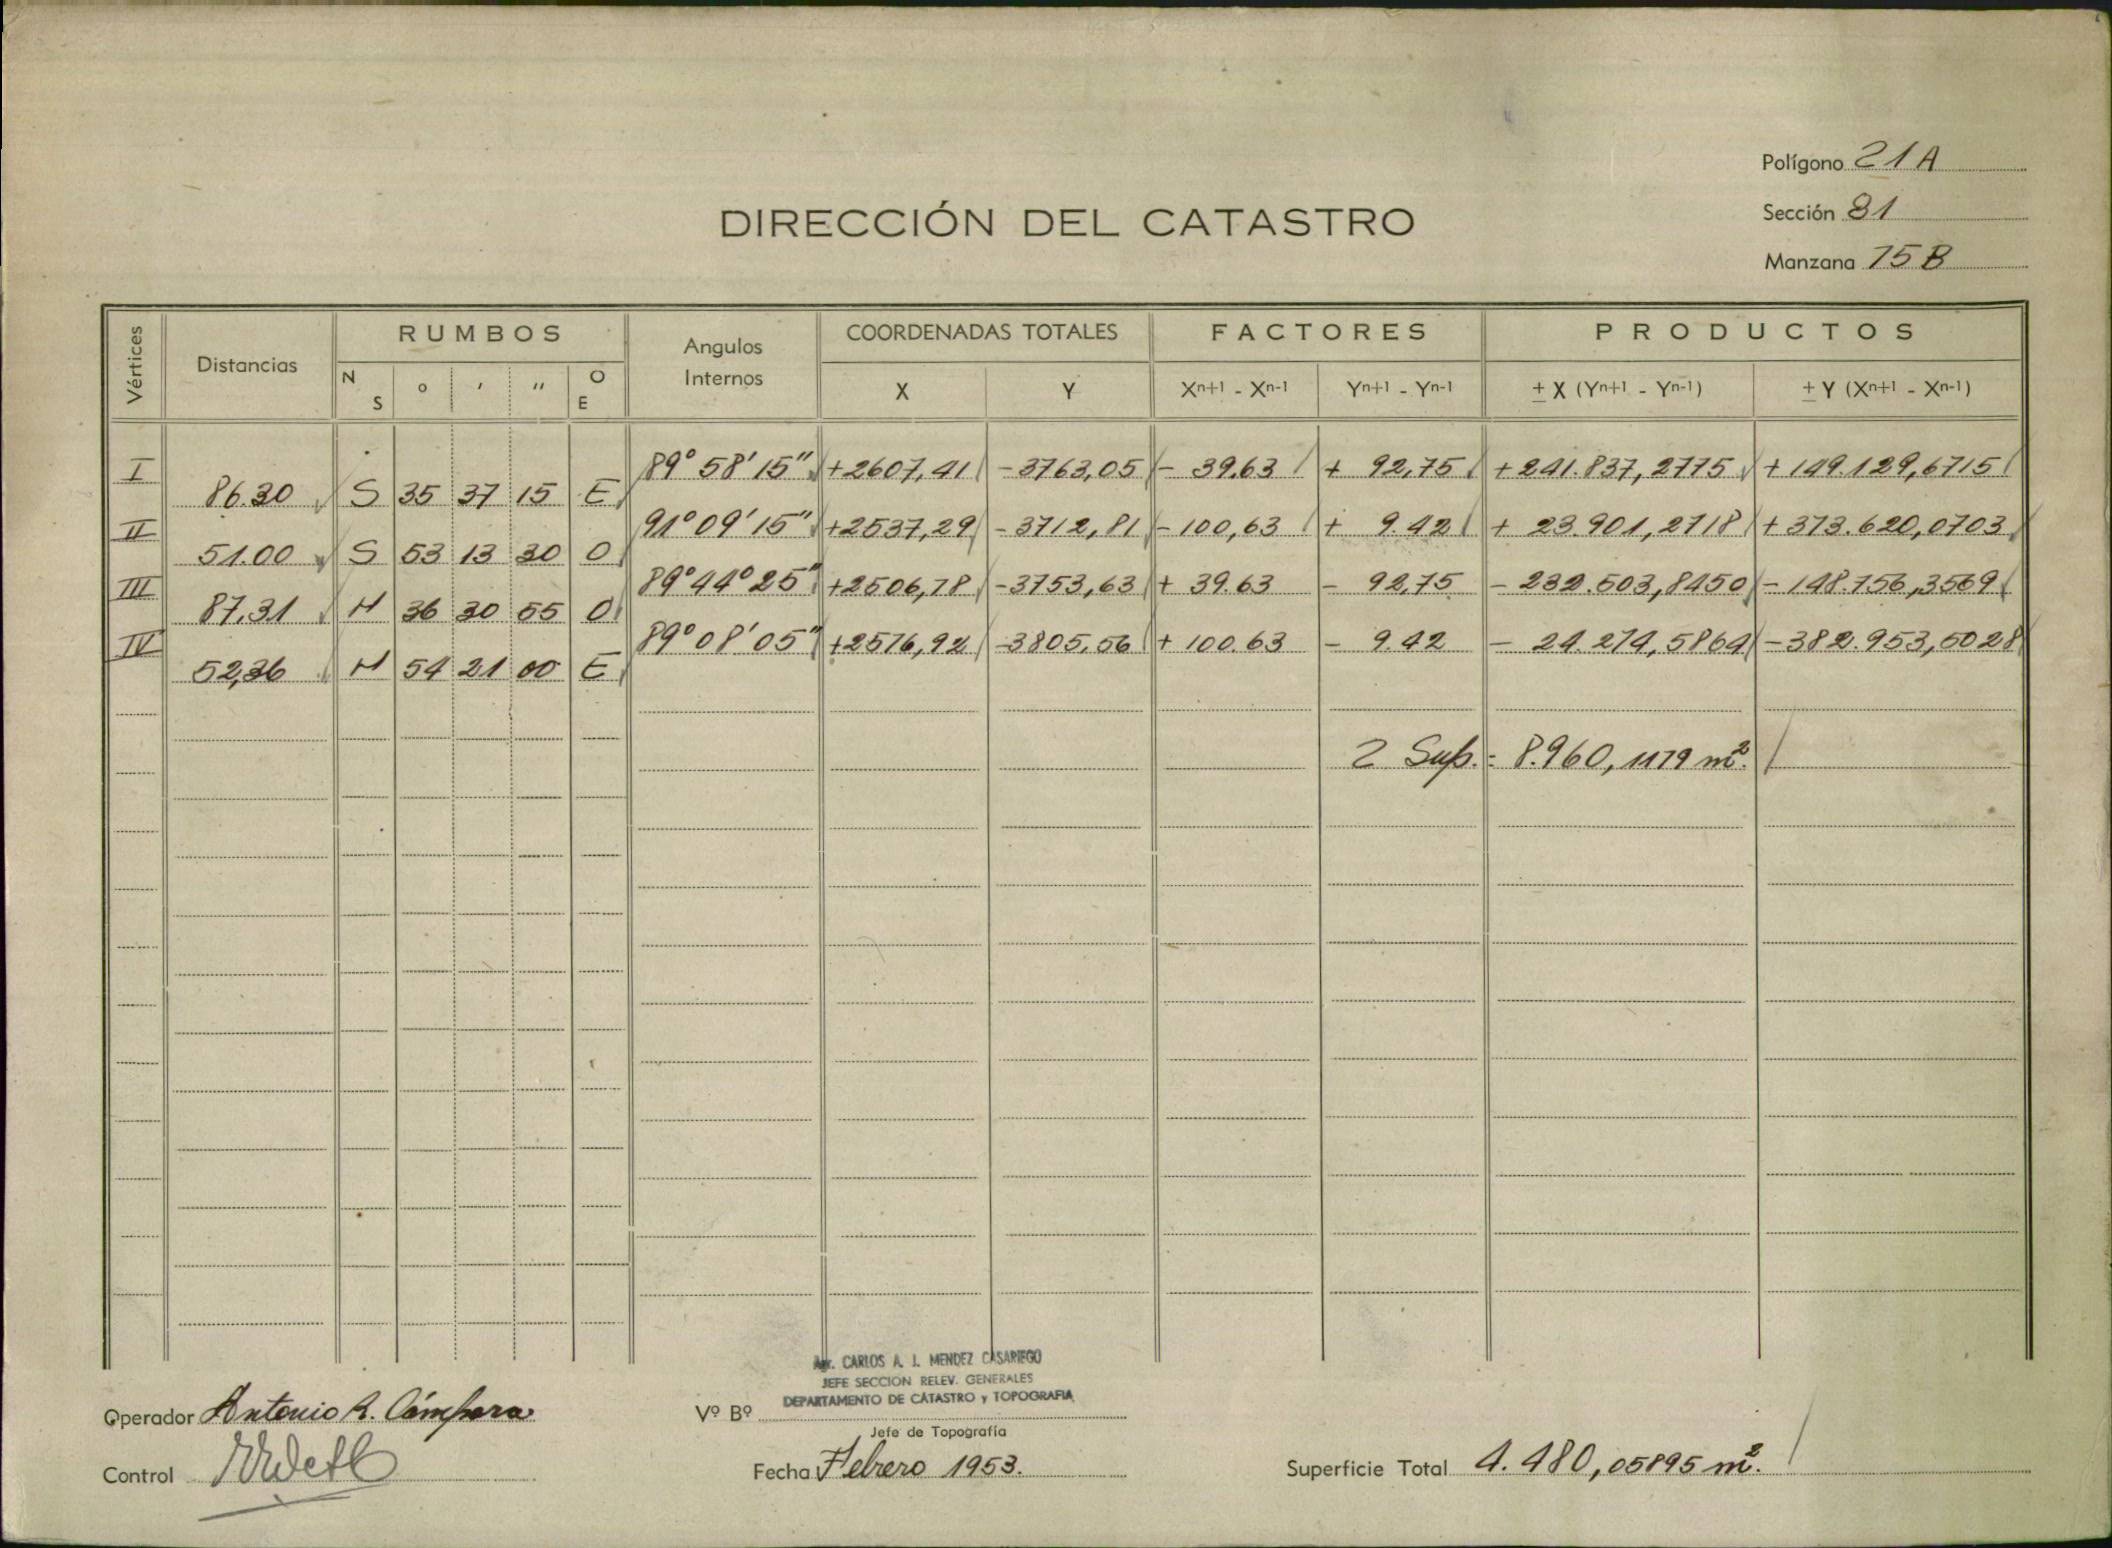 Polígono 21A
DIRECCIÓN DEL CATASTRO
Sección 81
Manzana 75B
Vértices Distancias RUMBOS Angulos Internos COORDENADAS TOTALES FACTORES PRODUCTOS
N S o ' " O E X Y Xn+1 - Xn-1 Yn+1 - Yn-1 ± X (Yn+1 - Yn-1) ± Y (Xn+1 - Xn-1)
I 89° 58' 15" +2607,41 -3763,05 - 39,63 + 92,75 +241.837,2775 +149.129,6715
86.30 S 35 37 15 E
II 91° 09' 15" +2537,29 -3712,81 -100,63 + 9.42 + 23.901,2718 +373.620,0703
51.00 S 53 13 30 O
III 89° 44° 25" +2506,78 -3753,63 + 39.63 - 92,75 - 232.503,8450 -148.756,3569
87,31 N 36 30 55 O
IV 89° 08' 05" +2576,92 -3805,56 + 100.63 - 9.42 - 24.274,5864 -382.953,5028
52,36 N 54 21 00 E
2 Sup. = 8.960,1179 m².
Agr. CARLOS A. J. MENDEZ CASARIEGO
JEFE SECCION RELEV. GENERALES
DEPARTAMENTO DE CATASTRO y TOPOGRAFIA
Operador Antonio R. Cámpora
Vº Bº
Jefe de Topografía
Control
Fecha Febrero 1953.
Superficie Total 4.480,05895 m².